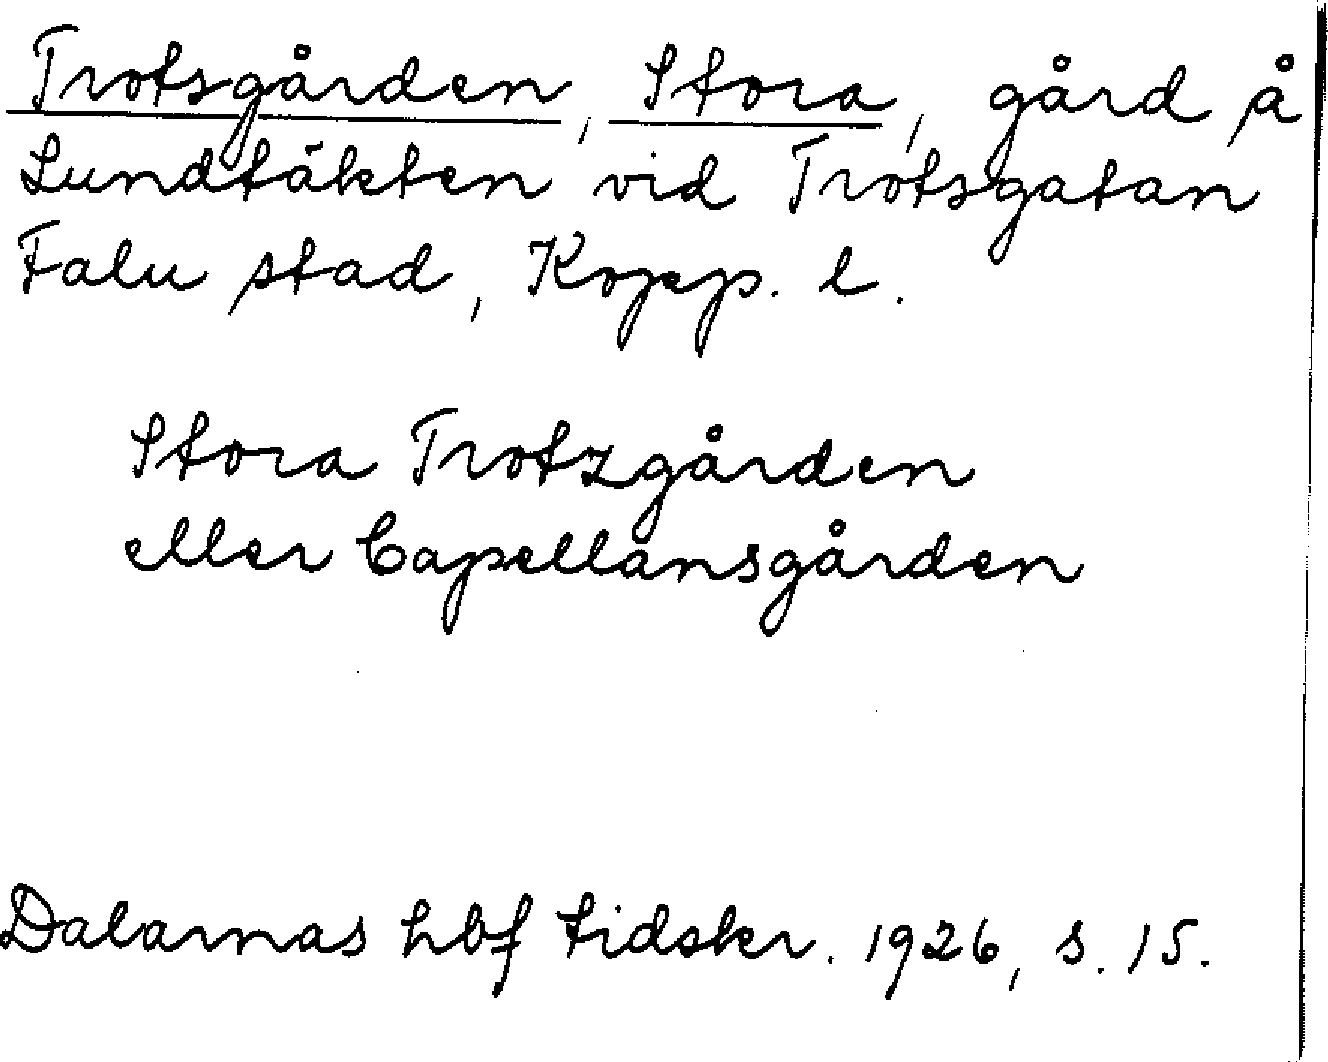 Trotsgården, Stora, gård å
Lundtäkten vid Trotsgatan
Falu stad, Kopp. l.
Stora Trotzgården
eller Capellansgården
Dalarnas hbf tidskr. 1926, s. 15.